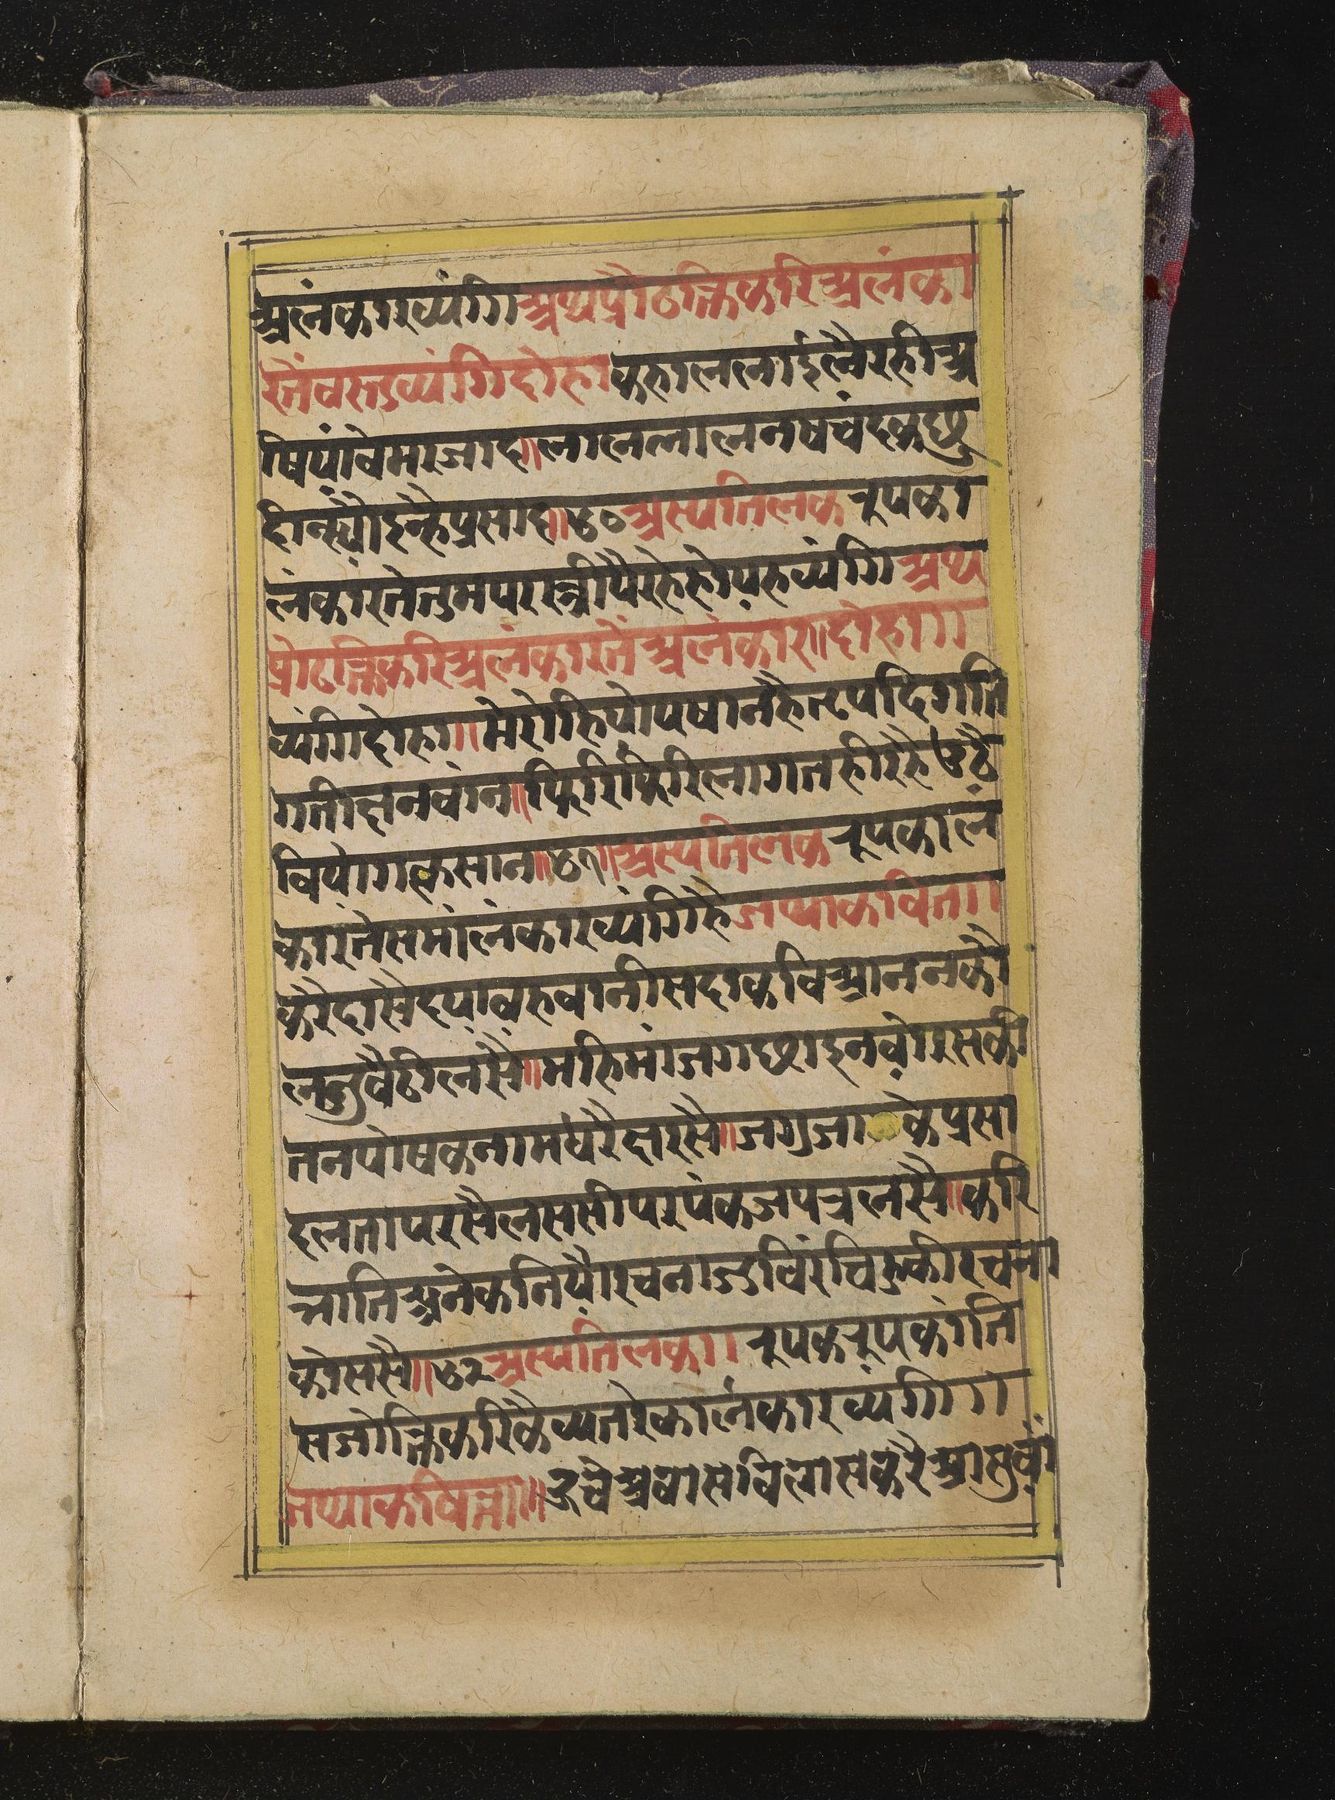 अलंकारव्यंगि अथप्रौढोक्तिकरिअलंका
रतेंवस्तुव्यंगिदोहा कहाललाईल्वैरहीअ
षियांवेमरजाद॥लाललालनषचंदकुदु
दीन्ह्यौइन्हैप्रसाद॥७०अस्यतिलक रूपका
लंकारतेतुमपरस्त्रीपैरहेहोयहव्यंगि अथ
प्रोढोक्तिकरिअलंकारतेंअलंकार॥दोहा॥
व्यंगिदोहा॥मेरोहियोपषानहैत्यपदिगति
गतीछनवांन॥फिरिफिरिलागतहीरहैउठै
वियोगकृसान॥७१॥अस्यतिलक रूपकालं
कारतेसमालंकारव्यंगिहै जथाकवित॥
करैदासैदयावहवानीसदाकविआननकौ
लजुवैठीलसै॥महिमांजगछाइनवोरसकी
तनपोषकनामधरैछरसै॥जगुजाकेप्रसा
दलतापरसैलससीपरपंकजपत्रलसै॥करि
भातिअनेकनियौरचनाजुविरंचिहुकीरचना
कोससै॥७२अस्यतिलक॥ रूपकरूपकांति
सजोक्तिकरिकैव्यतरेकालंकारव्यंगि॥
जथाकवित्त॥ऊचैअवासविलासकरैआसुवां